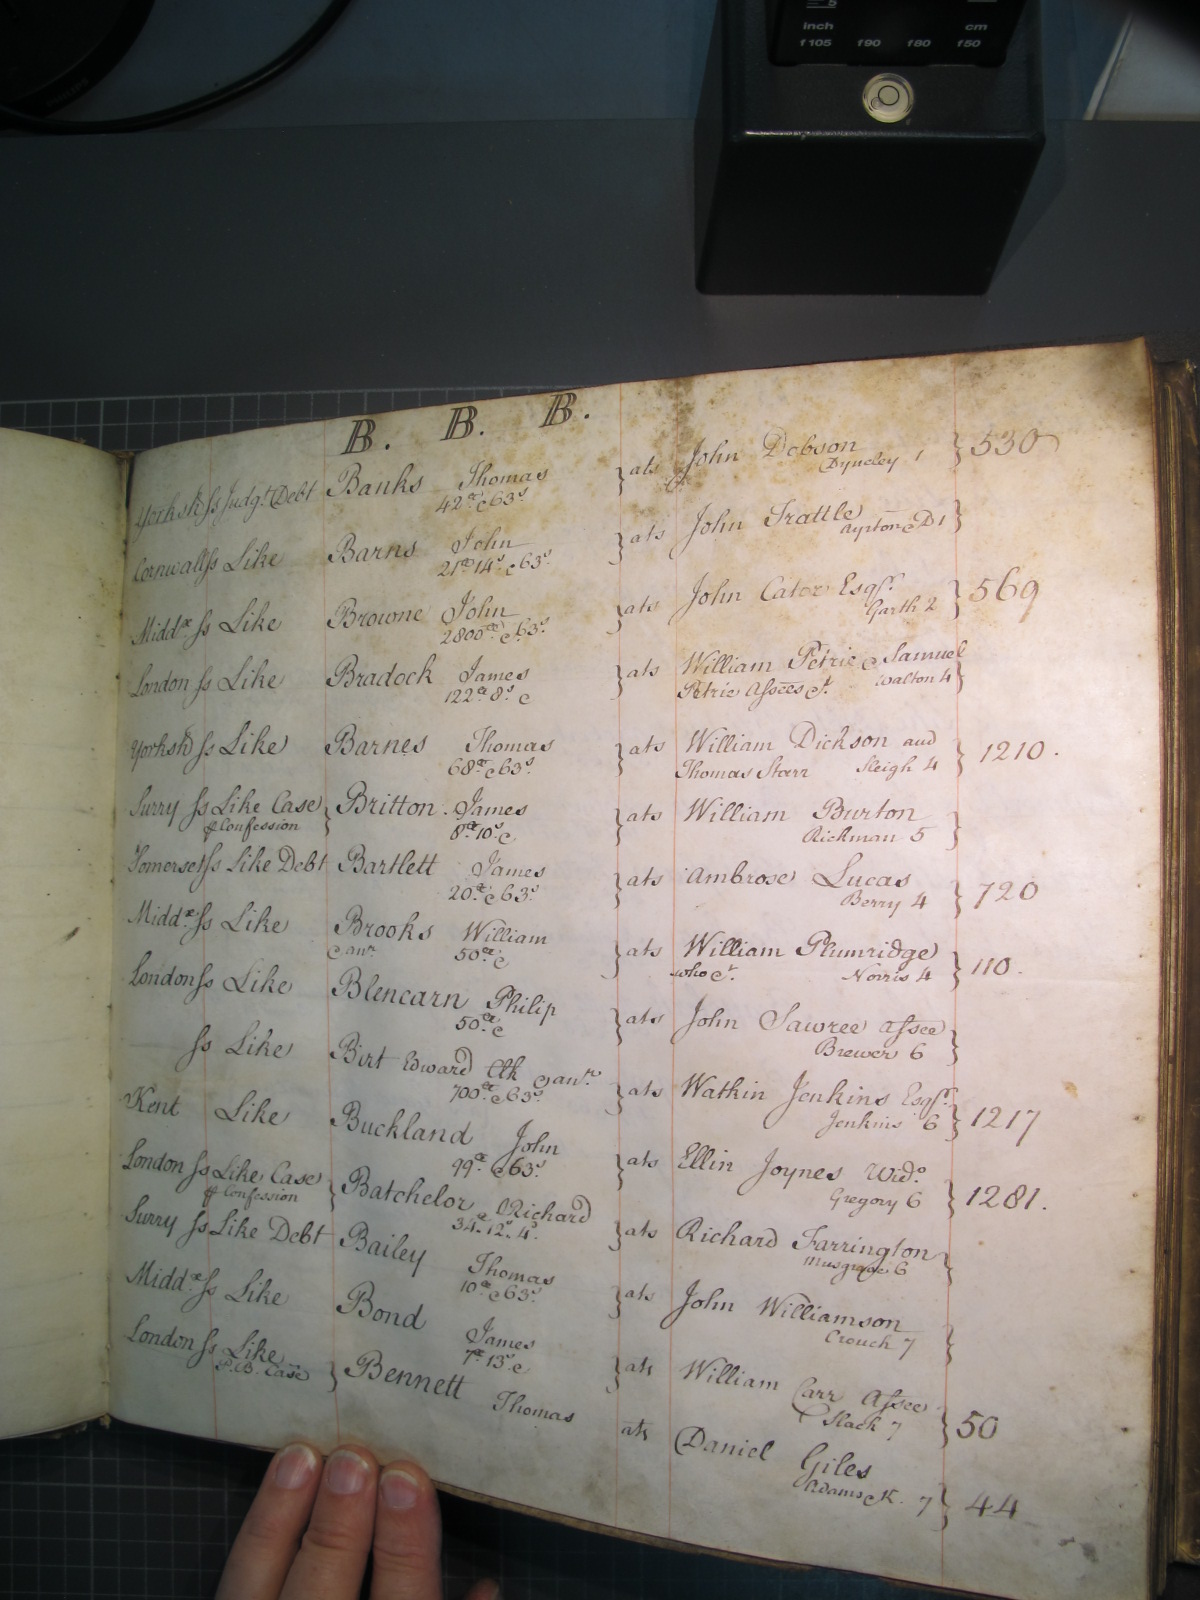 inch cm
f105 f90 f80 f50
B. B. B.
Yorksh ss Judgt. Debt Banks Thomas } ats John Dobson } 530
42£ & 63s. &c Dyneley 1
Cornwall ss Like Barns John } ats John Trattle }
21£ 14s. & 63s. Aypton & D 1
Middx ss Like Browne John } ats John Cator Esqr. } 569
2800£ & 63s. Garth 2
London ss Like Bradock James } ats William Petrie & Samuel }
122£ 8s. & Petrie Assees &c. Walton 4
Yorksh ss Like Barnes Thomas } ats William Dickson and } 1210.
68£ & 63s. Thomas Starr Sleigh 4
Surry ss Like Case } Britton James } ats William Burton }
& Confession 8£ 10s & Rickman 5
Somerset ss Like Debt Bartlett James } ats Ambrose Lucas } 720
20£ & 63s. Berry 4
Middx ss Like Brooks William } ats William Plumridge } 110.
& anr. 50£ & who &c. Norris 4
London ss Like Blencarn Philip } ats John Sawree Assee }
50£ & Brewer 6
ss Like Birt Edward Clk & anr. } ats Watkin Jenkins Esqr. } 1217
700£ & 63s. Jenkins 6
Kent Like Buckland John } ats Ellin Joynes Wido. } 1281.
99£ & 63s. Gregory 6
London ss Like Case } Batchelor Richard } ats Richard Farrington }
& Confession 34. 12. 4. Musgrave 6
Surry ss Like Debt Bailey Thomas } ats John Williamson }
10£ & 63s. Crouch 7
Middx ss Like Bond James } ats William Carr Assee } 50
7£ 13s. & & Slack 7
London ss Like } Bennett Thomas ats Daniel Giles } 44
P.B. Case Adams & K. 7